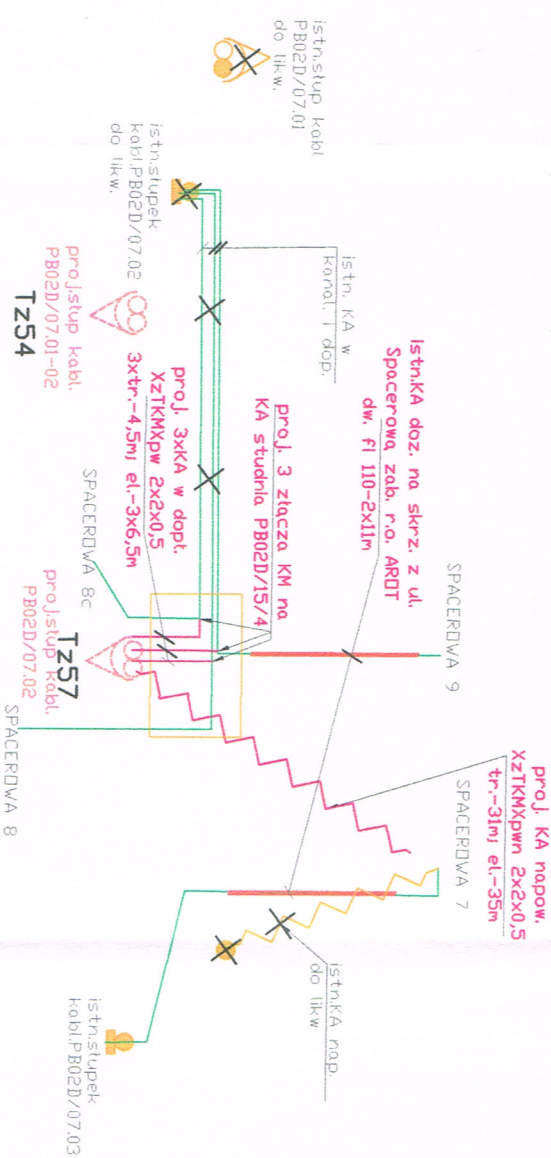 istn.słup kabl
PB02D/07.01
do likw.
istn.słupek
kabl.PB02D/07.02
do likw.
proj.słup kabl.
PB02D/07.01-02
Tz54
istn. KA w
kanal. i dop.
Istn.KA doz. na skrz. z ul.
Spacerową zab. r.o. AROT
dw. fi 110-2x11m
proj. 3 złącza KM na
KA studnia PB02D/15/4
proj. 3xKA w dopł.
XzTKMXpw 2x2x0,5
3xtr.-4,5m; el.-3x6,5m
SPACEROWA 8c
Tz57
proj.słup kabl.
PB02D/07.02
SPACEROWA 8
SPACEROWA 9
proj. KA napow.
XzTKMXpwn 2x2x0,5
tr.-31m; el.-35m
SPACEROWA 7
istn.KA nap.
do likw
istn.słupek
kabl.PB02D/07.03